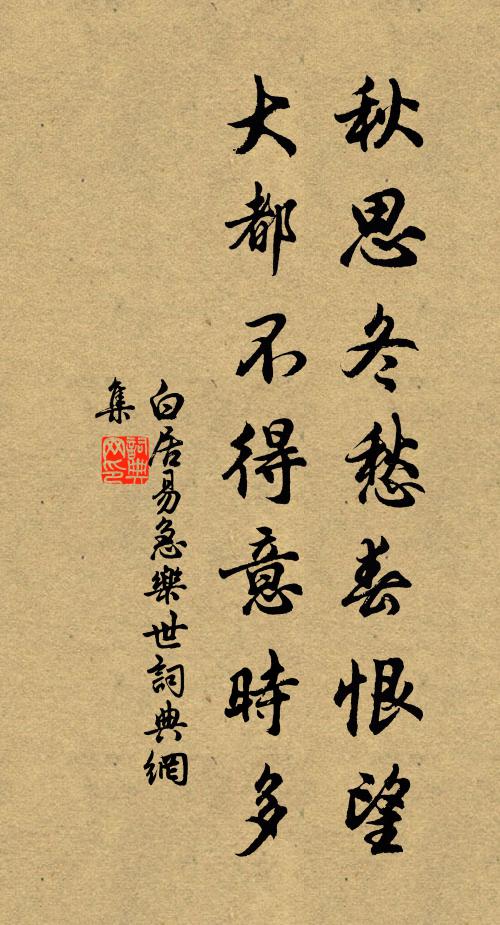 秋思冬愁春恨望
大都不得意時多
白居易急樂世詞典網
集
詞典網印